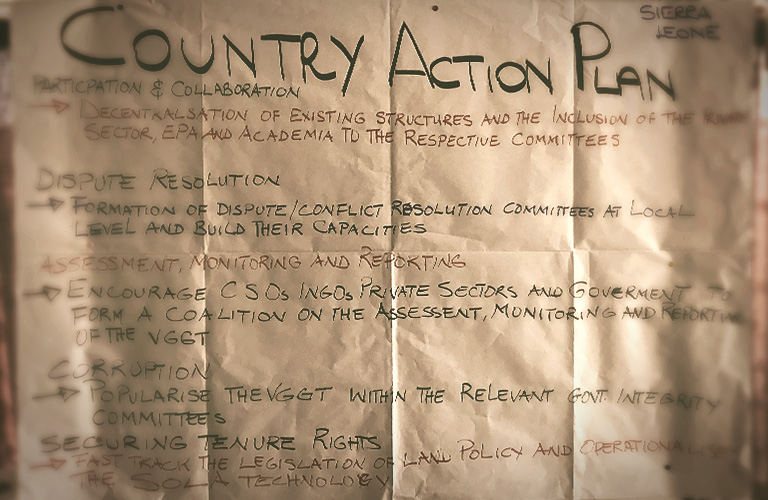 SIERRA
LEONE
COUNTRY ACTION PLAN
PARTICPATION & COLLABORATION
→ DECENTRALSATION OF EXISTING STRUCTURES AND THE INCLUSION OF THE PRIVATE
SECTOR, EPA AND ACADEMIA TO THE RESPECTIVE COMMITTEES
DISPUTE RESOLUTION
→ FORMATION OF DISPUTE/CONFLICT RESOLUTION COMMITTEES AT LOCAL
LEVEL AND BUILD THEIR CAPACITIES
ASSESSMENT, MONITORING AND REPORTING
→ ENCOURAGE CSOs INGOs PRIVATE SECTORS AND GOVERMENT TO
FORM A COALITION ON THE ASSESSENT, MONITORING AND REPORTING
OF THE VGGT
CORRUPTION
→ POPULARISE THE VGGT WITHIN THE RELEVANT GOVT. INTEGRITY
COMMITTEES
SECURING TENURE RIGHTS
→ FAST TRACK THE LEGISLATION OF LAND POLICY AND OPERATIONALISE
THE SOLA TECHNOLOGY